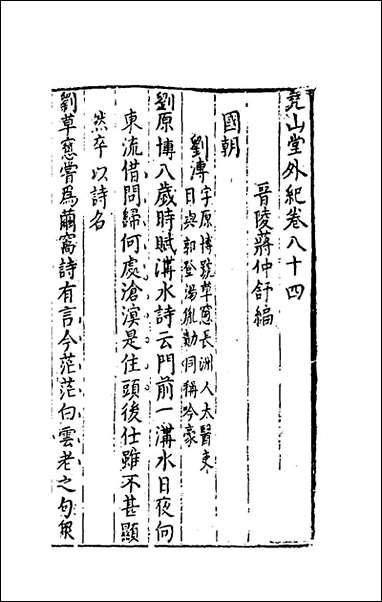 堯山堂外紀卷八十四
晉陵蔣仲舒編
國朝
劉溥字原博號草窓長洲人太醫吏
目與郭登湯胤勣同稱吟豪
劉原博八歲時賦溝水詩云門前一溝水日夜向
東流借問歸何處滄溟是住頭後仕雖不甚顯
然卒以詩名
劉草窓嘗爲繭窩詩有言今茫茫白雲老之句